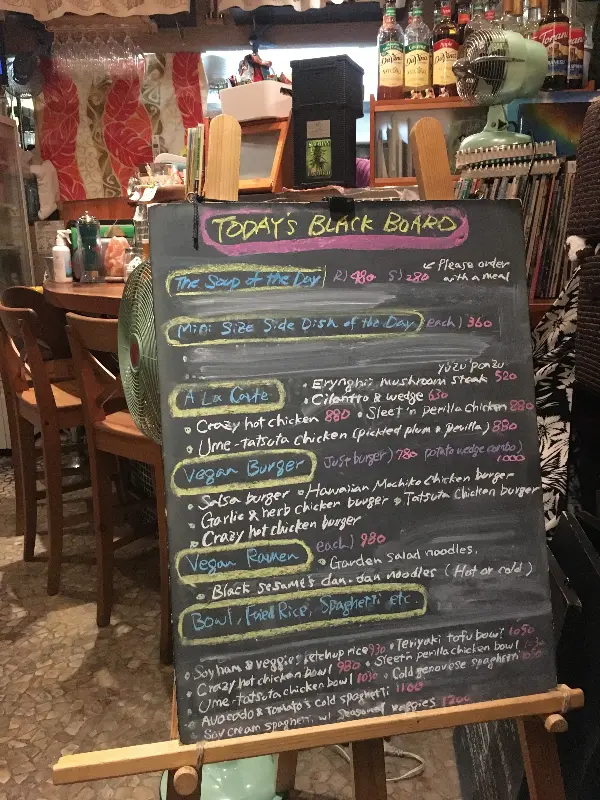 TODAY'S BLACK BOARD
The Soup of the Day R) 480 S) 280 ↙ Please order with a meal
Mini Size Side Dish of the Day each) 360
yuzu ponzu
A La Carte • Erynghii mushroom steak 520
• Cilantro & wedge 630
• Crazy hot chicken 880 • Sleet'n Perilla chicken 880
• Ume-tatsuta chicken (pickled plum & perilla) 880
Vegan Burger Just burger) 780 potato wedge combo) 1000
• Salsa burger • Hawaiian Mochiko chicken burger
• Garlic & herb chicken burger • Tatsuta Chicken burger
• Crazy hot chicken burger
Vegan Ramen each) 980
• Garden Salad noodles,
• Black sesame's dan-dan noodles (Hot or cold)
Bowl, Fried Rice, Spaghetti etc.
• Soy ham & veggies ketchup rice 930 • Teriyaki tofu bowl 1050
• Crazy hot chicken bowl 980 • Sleet'n perilla chicken bowl
• Ume-tatsuta chicken bowl 1030 • Cold genovese spaghetti
• Avocado & tomato's cold spaghetti 1100
• Soy cream spaghetti w/ seasonal veggies 1200
DaVinci
Torani